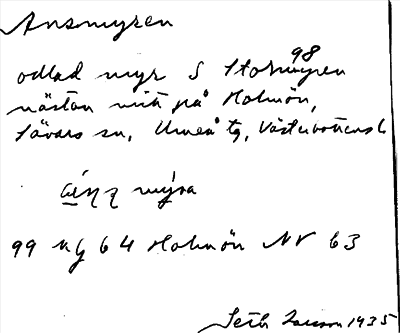 Ansmyren
odlad myr S Stormyren 98
nästan mitt på Holmön,
Sävars sn, Umeå tg, Västerbottens l
mýra
99 Mg 64 Holmön NV 63
Seth Larsson 1935